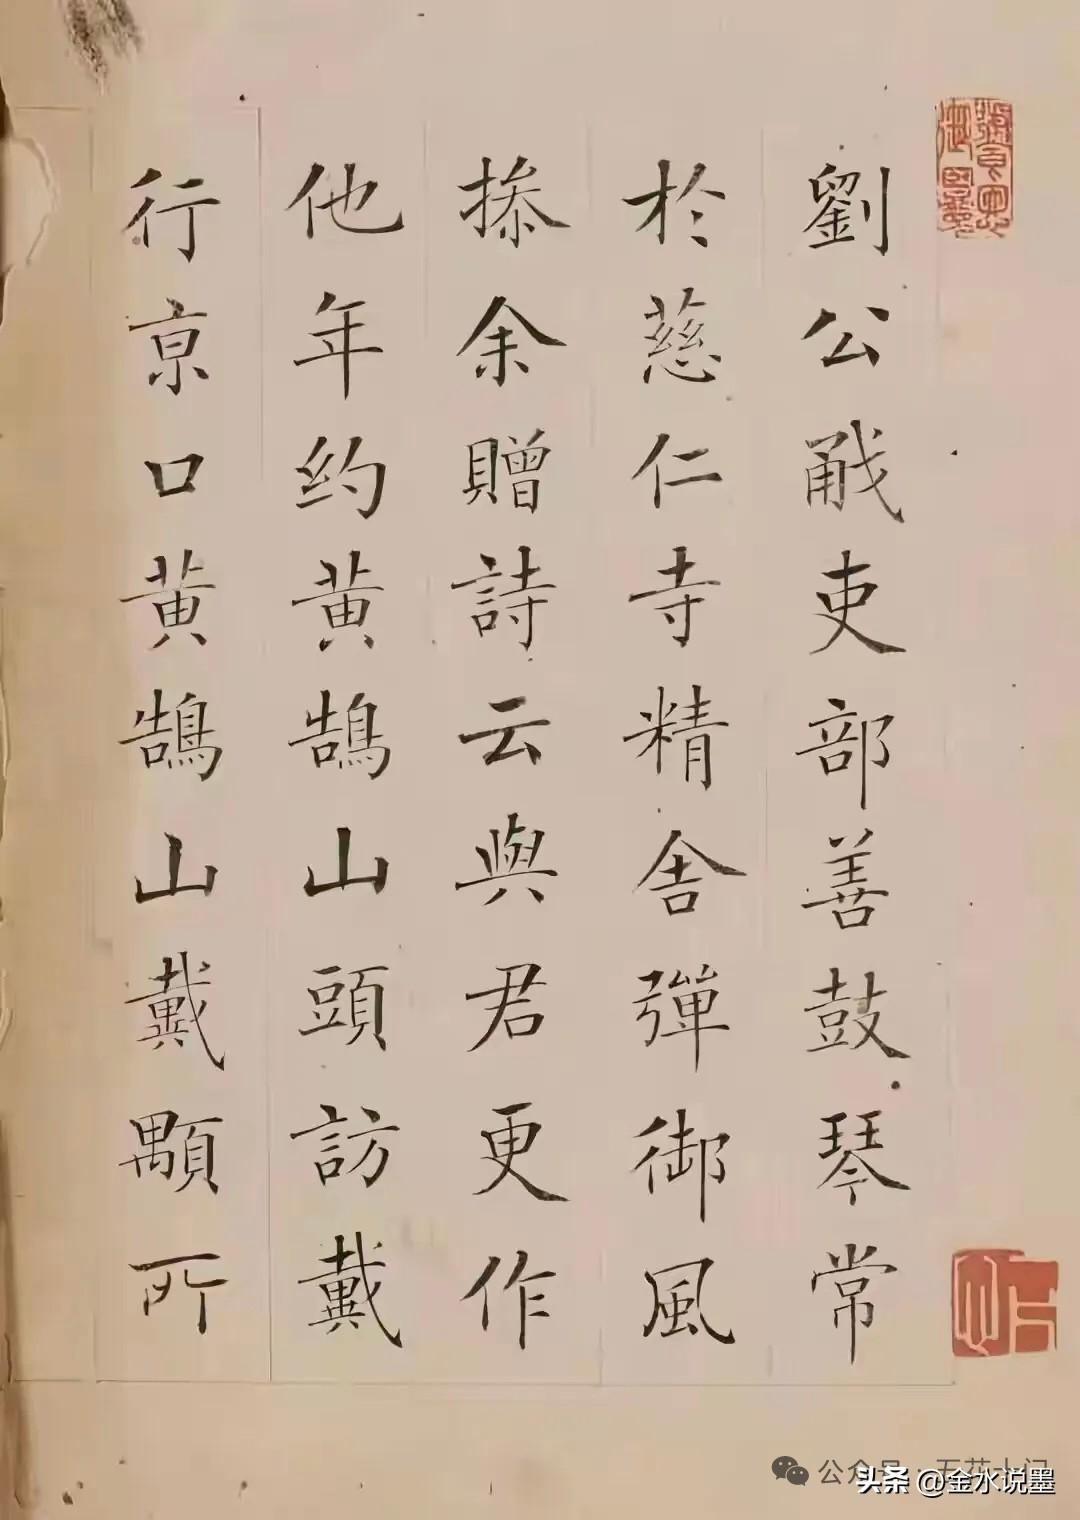 劉公㦷吏部善鼓琴常
於慈仁寺精舍彈御風
操余贈詩云與君更作
他年约黄鵠山頭訪戴
行京口黄鵠山戴顒所
公众号
头条 @金水说墨